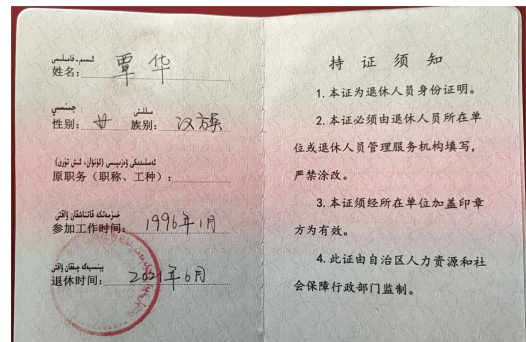 ئىسىم-فامىلىسى
姓名: 覃华
جىنسىي مىللىتى
性别: 女 族别: 汉族
ئەسلىدىكى ۋەزىپىسى (ئۇنۋان، ئىش تۈرى)
原职务（职称、工种）:
خىزمەتكە قاتناشقان ۋاقتى
参加工作时间: 1996年1月
پېنسىيەگە چىققان ۋاقتى
退休时间: 2021年6月
持证须知
1.本证为退休人员身份证明。
2.本证必须由退休人员所在单
位或退休人员管理服务机构填写，
严禁涂改。
3.本证须经所在单位加盖印章
方为有效。
4.此证由自治区人力资源和社
会保障行政部门监制。